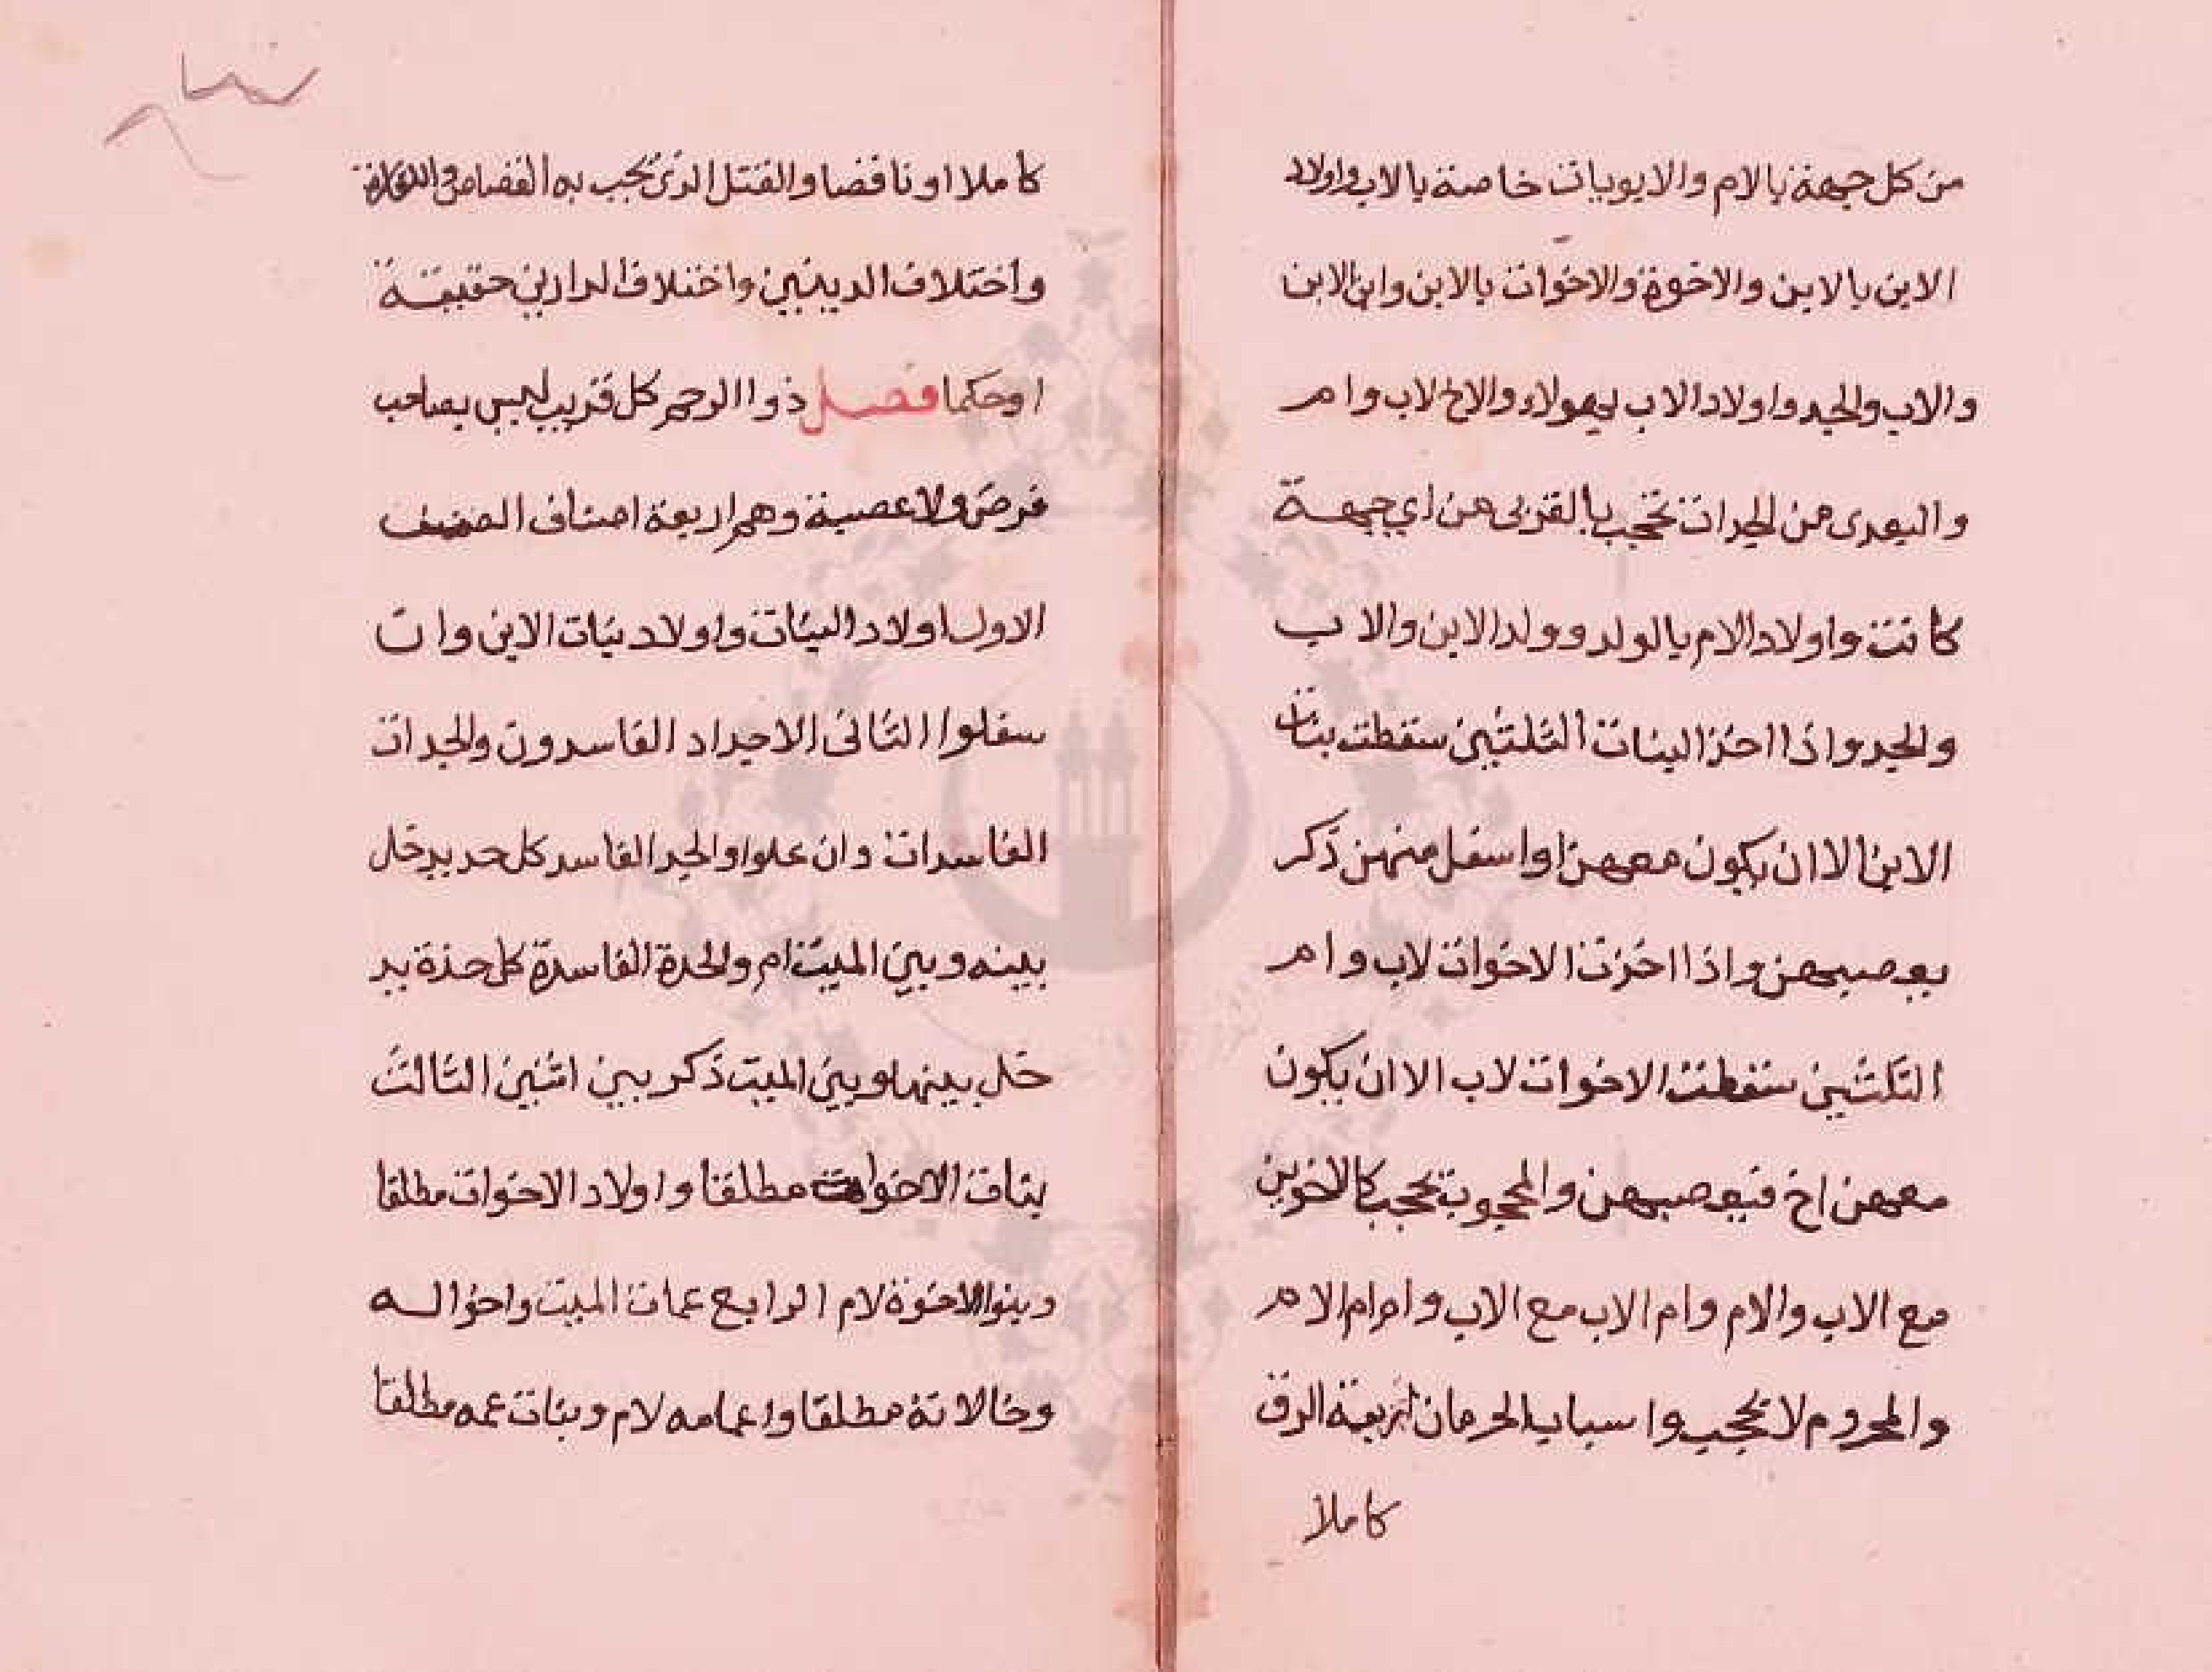 من كل جهة بالام والابويات خاصة بالاب واولاد
الابن بالابن والاخوة والاخوات بالابن وابن الابن
والاب والجد واولاد الاب بهولاء والاخ لاب وام
والبعدى من الجدات تحجب بالقربى من اي جهة
كانت واولاد الام بالولد وولد الابن والاب
والجد واذا احرز البنات الثلثين سقطت بنات
الابن الا ان يكون معهن او اسفل منهن ذكر
يعصبهن واذا احزت الاخوات لاب وام
الثلثين سقطت الاخوات لاب الا ان يكون
معهن اخ فيعصبهن والمحجوب يحجب كالاخوين
مع الاب والام وام الاب مع الاب وام ام الام
والمحروم لا يحجب واسباب الحرمان اربعة الرق
كاملا
كاملا او ناقصا والقتل الذى يجب به القصاص والكفارة
واختلاف الدينين واختلاف الدارين حقيقة
او حكما فصل ذوا الرحم كل قريب ليس بصاحب
فرض ولا عصبة وهم اربعة اصناف الصنف
الاول اولاد البنات واولاد بنات الابن وان
سفلوا الثانى الاجداد الفاسدون والجدات
الفاسدات وان علوا والجد الفاسد كل جد يدخل
بينه وبين الميت ام والجدة الفاسدة كل جدة يد
خل بينها وبين الميت ذكر بين انثيين الثالث
بنات الاخوات مطلقا واولاد الاخوات مطلقا
وبنوا الاخوة لام الرابع عمات الميت واخواله
وخالاته مطلقا واعمامه لام وبنات عمه مطلقا